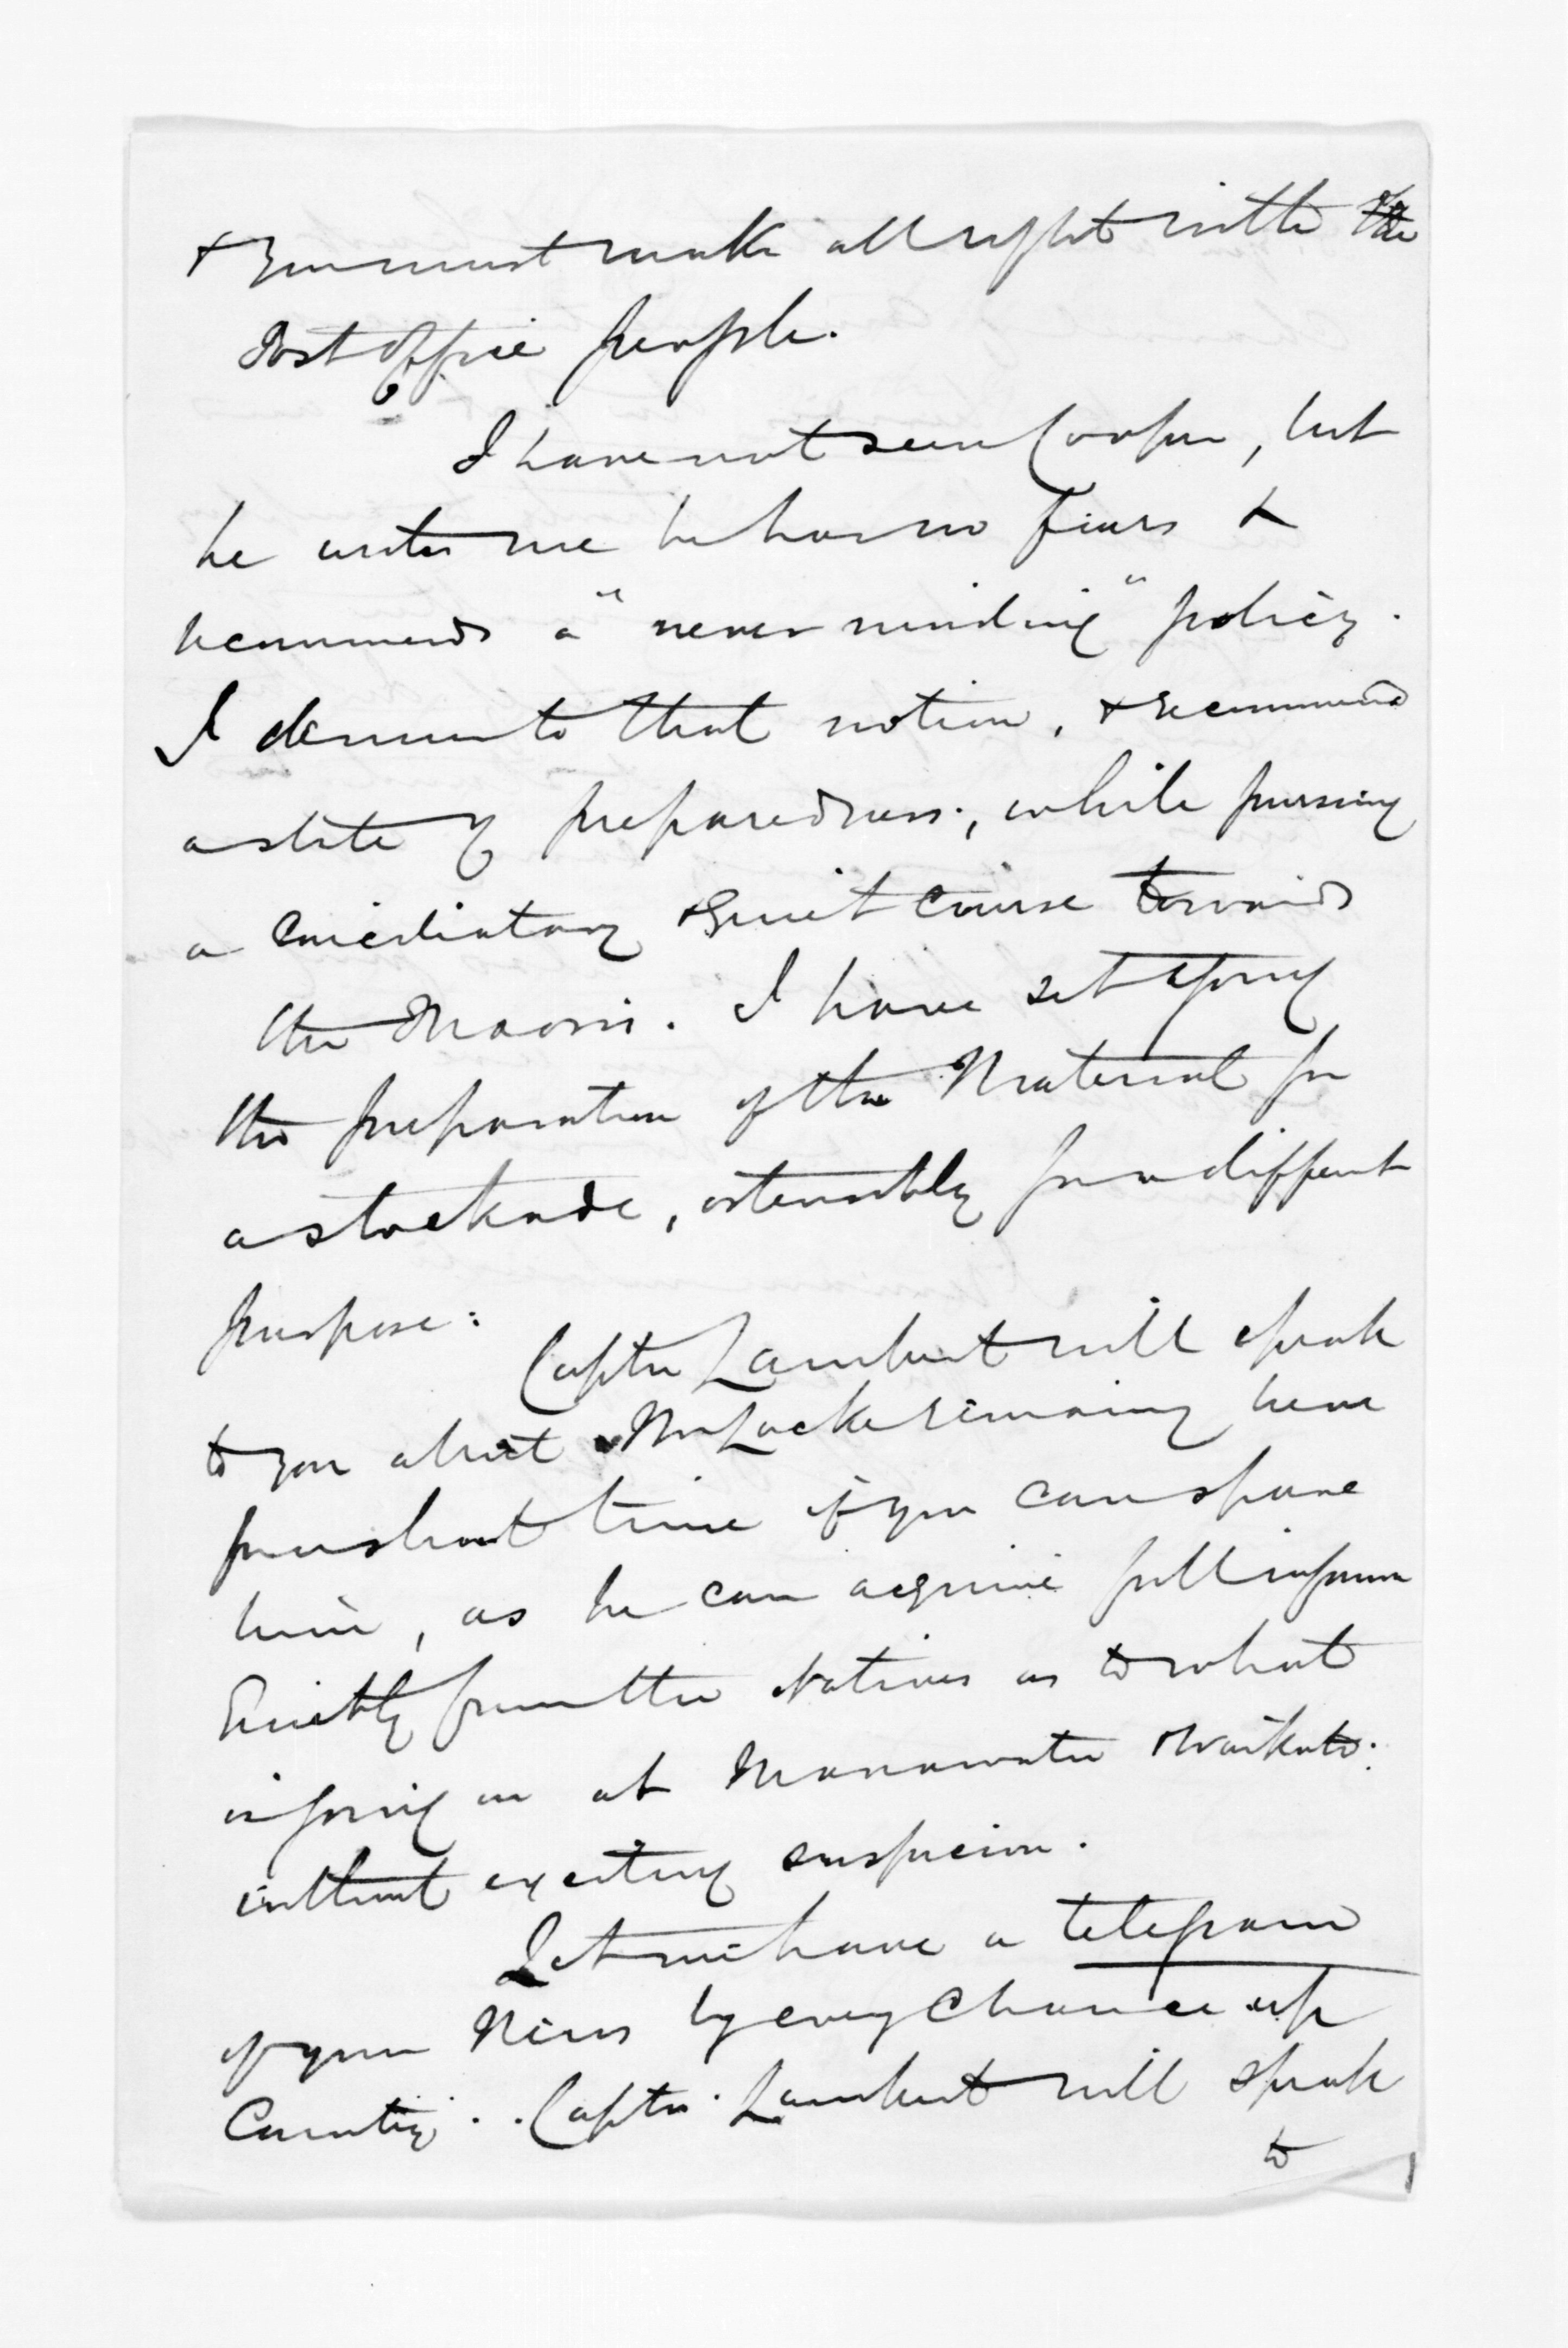 & you must make all right with the
Post Office people.
I have not seen Cooper, but
he writes me he has no fears &
recommends a "never minding" policy.
I demur to that notion, & recommend
a state of preparedness, while pursuing
a conciliatory & quiet course towards
the Maoris. I have set agoing
the preparation of the Material for
a stockade, ostensibly for a different
purpose:
Captn Lambert will speak
to you about Mr Locke remaining here
for a short time if you can spare
him, as he can acquire full informn
quietly from the Natives as to what
is going on at Manawatu & Waikato.
without exciting suspicion.
Let me have a telegram
of your News by every chance up
Country. Captn. Lambert will speak
to